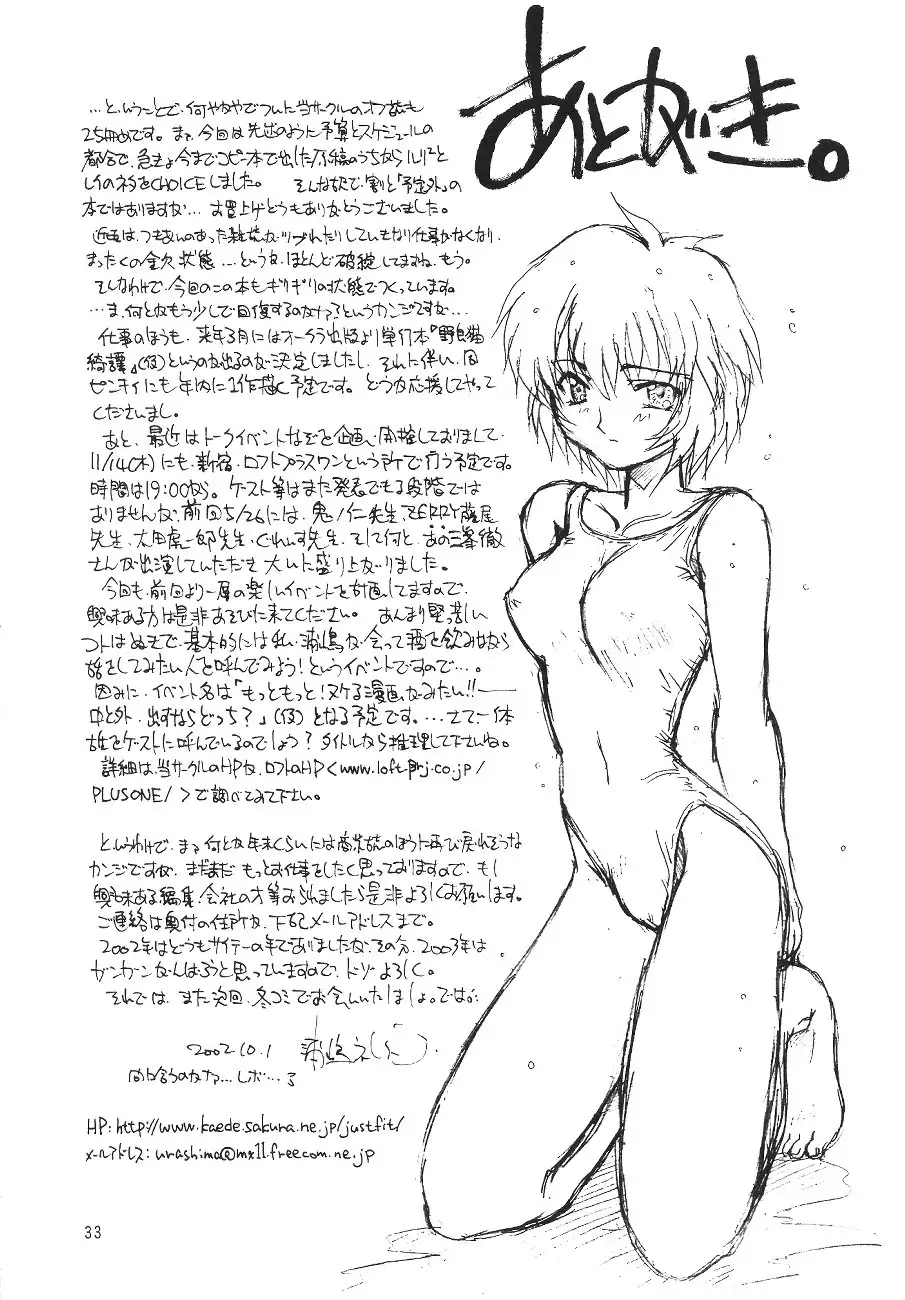 あとがき。
…ということで、何やかやでついに当サークルのオフ誌も
25冊めです。まァ今回は先述のように予算とスケジュールの
都合で、急きょ今までコピー本で出した原稿のうちからルリ²と
レイのネタをCHOICEしました。 そんな訳で割と「予定外」の
本ではありますが… お買上げどうもありがとうございました。
近況は、つきあいのあった雑誌がツブれたりしていきなり仕事がなくなり、
まったくの金欠状態…というか、ほとんど破綻してますね、もう。
そんなわけで、今回のこの本もギリギリの状態でつくっています。
…ま、何とかもう少しで回復するのかナァ?というカンジですが…
仕事のほうも、来年3月にはオークラ出版より単行本『野良猫
綺譚』(仮)というのが出るのが決定しましたし、それに伴い、同
ゼンキイにも年内に1作描く予定です。どうか応援してやって
くださいまし。
あと、最近はトークイベントなどを企画・開催しておりまして、
11/14(木)にも、新宿・ロフトプラスワンという所で行う予定です。
時間は19:00から。ゲスト等はまだ発表できる段階では
ありませんが、前回5/26には、鬼ノ仁先生、ZERRY藤尾
先生、大田虎一郎先生、ぐれいす先生、そして何と、あの三峯徹
さんが出演していただき大いに盛り上がりました。
今回も前回より一層の楽しいイベントを計画してますので、
興味ある方は是非あそびに来てください。 あんまり堅苦しい
コトはぬきで、基本的には私・浦嶋が会って酒を飲みながら
話をしてみたい人を呼んでみよう!というイベントですので…。
因みに、イベント名は「もっともっと!ヌケる漫画がみたい!!――
中と外、出すならどっち?」(仮)となる予定です。…さて、一体
誰をゲストに呼んでいるのでしょう?タイトルから推理して下さいね。
詳細は、当サークルのHPか、ロフトのHP<www.loft-prj.co.jp/
PLUSONE/>で調べてみて下さい。
というわけで、まァ何とか年末くらいには商業誌のほうに再び戻れそうな
カンジですが、まだまだもっとお仕事をしたく思っておりますので、もし
興味ある編集・会社の方等おられましたら是非よろしくお願いします。
ご連絡は奥付の住所か、下記メールアドレスまで。
2002年はどうもサイテーの年でありましたが、その分、2003年は
ガンガンがんばろうと思っていますので、ドゾよろしく。
それでは、また次回、冬コミでお会いいたしましょ。では。
2002.10.1
HP:http://www.kaede.sakura.ne.jp/justfit/
メールアドレス:urashima@mx11.freecom.ne.jp
33